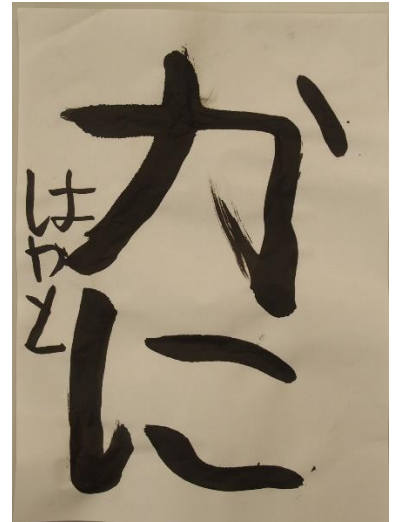 かに
はやと